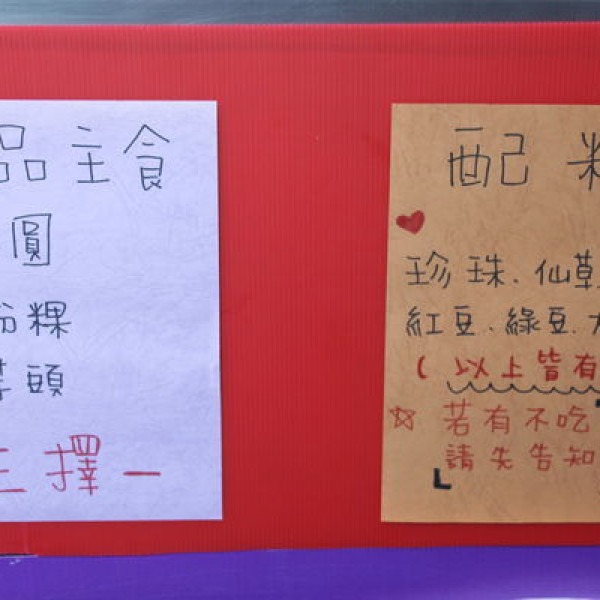 品主食
圓
粉粿
芋頭
三擇一
配料
珍珠.仙草
紅豆.綠豆.大
(以上皆有
☆若有不吃
請先告知